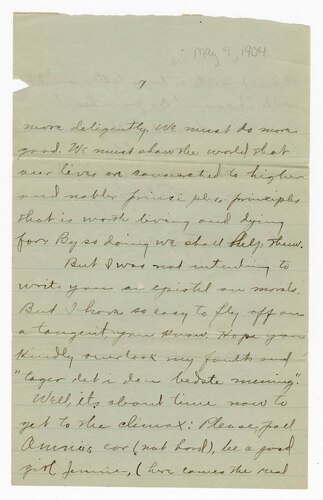 May 4, 1904
9
more deligently. We must do more
good. We must show the world that
our lives are consecrated to higher
and nobler principles, principles
that is worth living and dying
for. By so doing we shall help them.
But I was not intending to
write you an epistel on morals.
But I have so easy to fly off on
a tangent, you know. Hope you
kindly overlook my faults and
"tager det i den bedste mening".
Well, its about time now to
get to the climax: Please, pull
Amnies ear (not hard), be a good
girl Jennie, (here comes the real